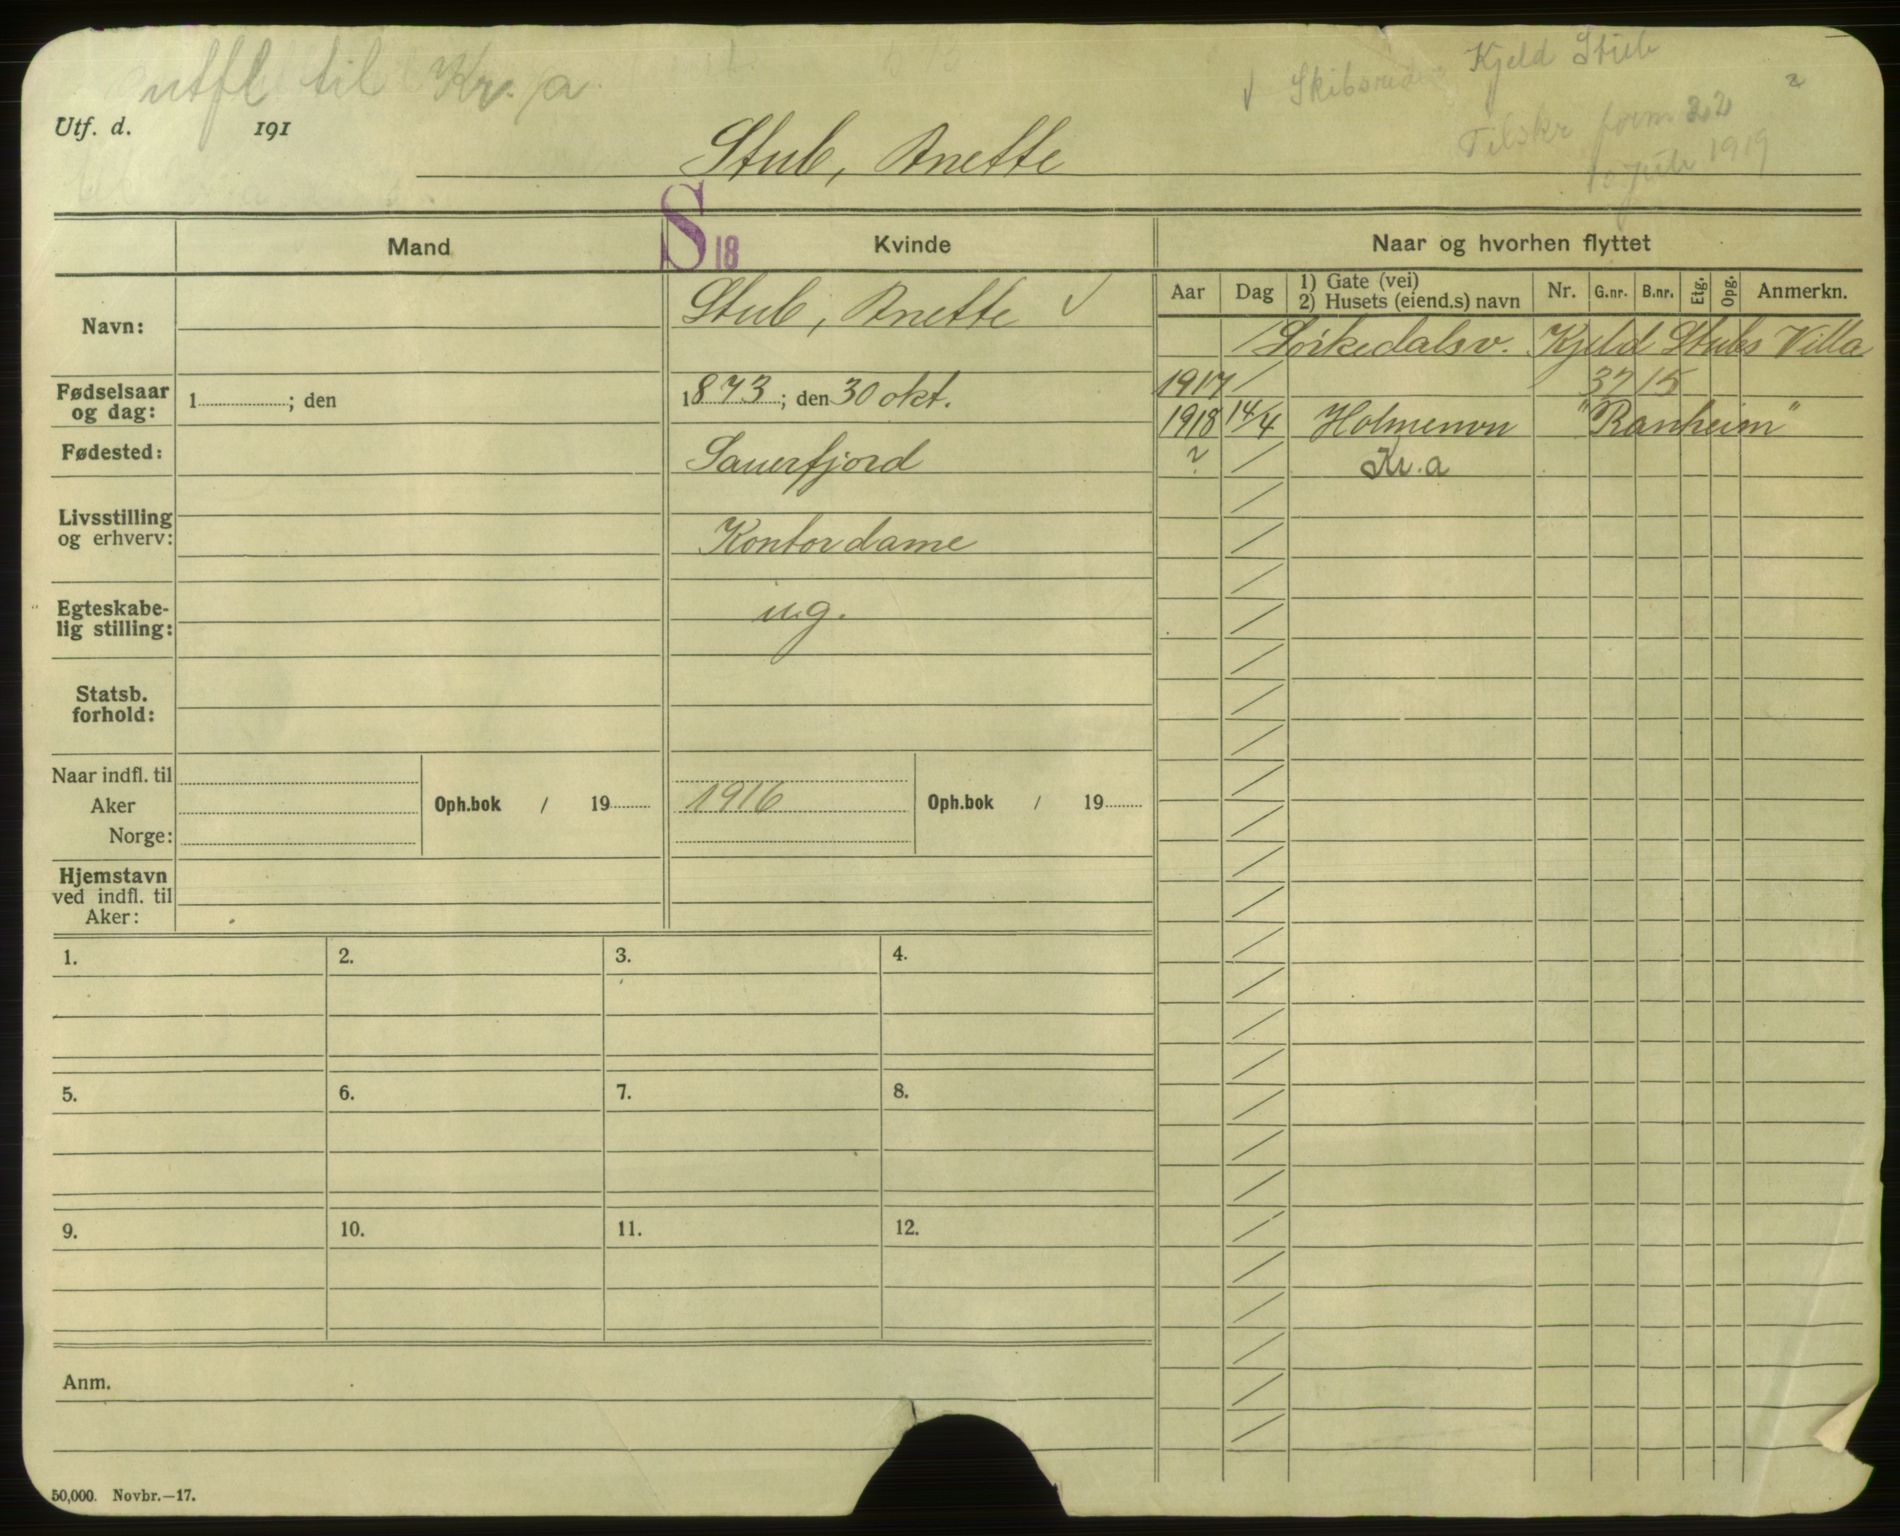 utfl til Kr. a.
Kjeld Stub
Utf. d. 191
Tilskr form 22
Stub, Anette
10 juli 1919
S 18
Mand Kvinde Naar og hvorhen flyttet
Aar Dag 1) Gate (vei) 2) Husets (eiend.s) navn Nr. G.nr. B.nr. Etg. Opg. Anmerkn.
Navn: Stub, Anette
Sörkedalsv. Kjeld Stubs Villa
1917 / 32 15
Fødselsaar og dag: 1 ; den 1873; den 30 okt.
1918 14/4 Holmenvn "Ranheim"
Fødested: Sauerfjord
? / Kr. a
Livsstilling og erhverv: Kontordame
Egteskabe-
lig stilling: ug.
Statsb.
forhold:
Naar indfl. til
Aker Oph.bok / 19 1916 Oph.bok / 19
Norge:
Hjemstavn
ved indfl. til
Aker:
1. 2. 3. 4.
5. 6. 7. 8.
9. 10. 11. 12.
Anm.
50,000. Novbr.—17.